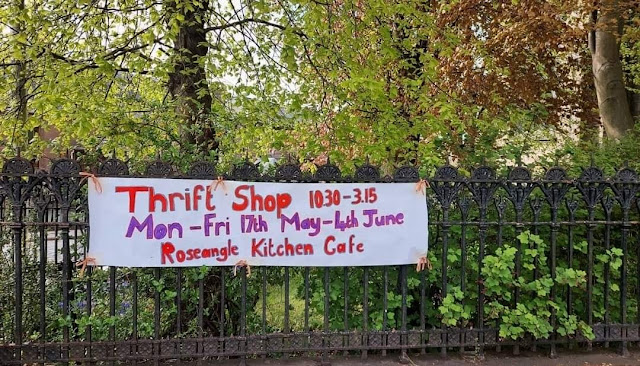 Thrift Shop 10.30-3.15
Mon-Fri 17th May-4th June
Roseangle Kitchen Cafe